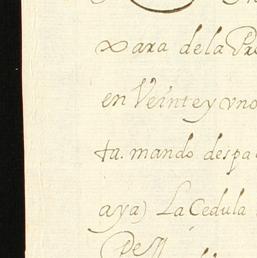 xara de la Pr
en Veinte y vno
ta. mando despa
aya) La Cedula
De M